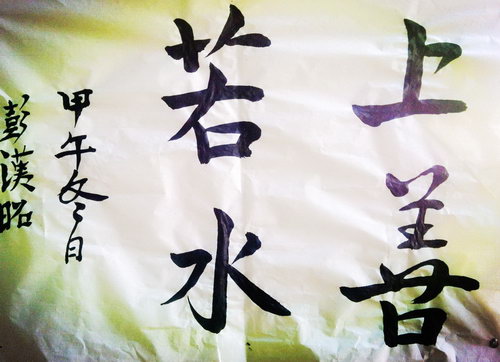 上善
若水
甲午冬日
彭漢昭